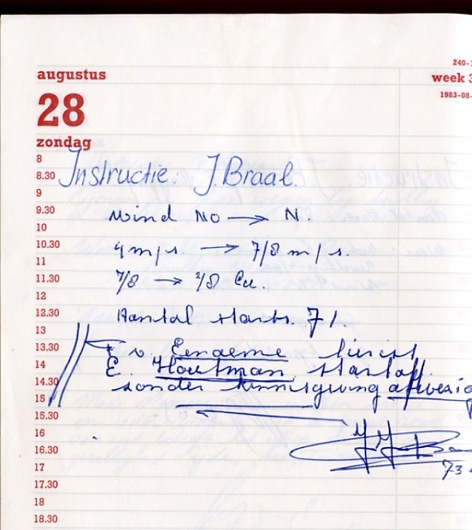 240-
augustus
week 3
28
1983-08-
zondag
8
8.30 Instructie: J. Braal.
9
9.30 wind NO → N.
10
10.30 4 m/s. → 7/8 m/s.
11
11.30 7/8 → 2/8 Cu.
12
12.30 Aantal starts. 71.
13
13.30 E. v. Eenaeme lierist
14 E. Houtman, startoff.
14.30 zonder kennisgeving afwezig
15
15.30
16
16.30
17 73
17.30
18
18.30